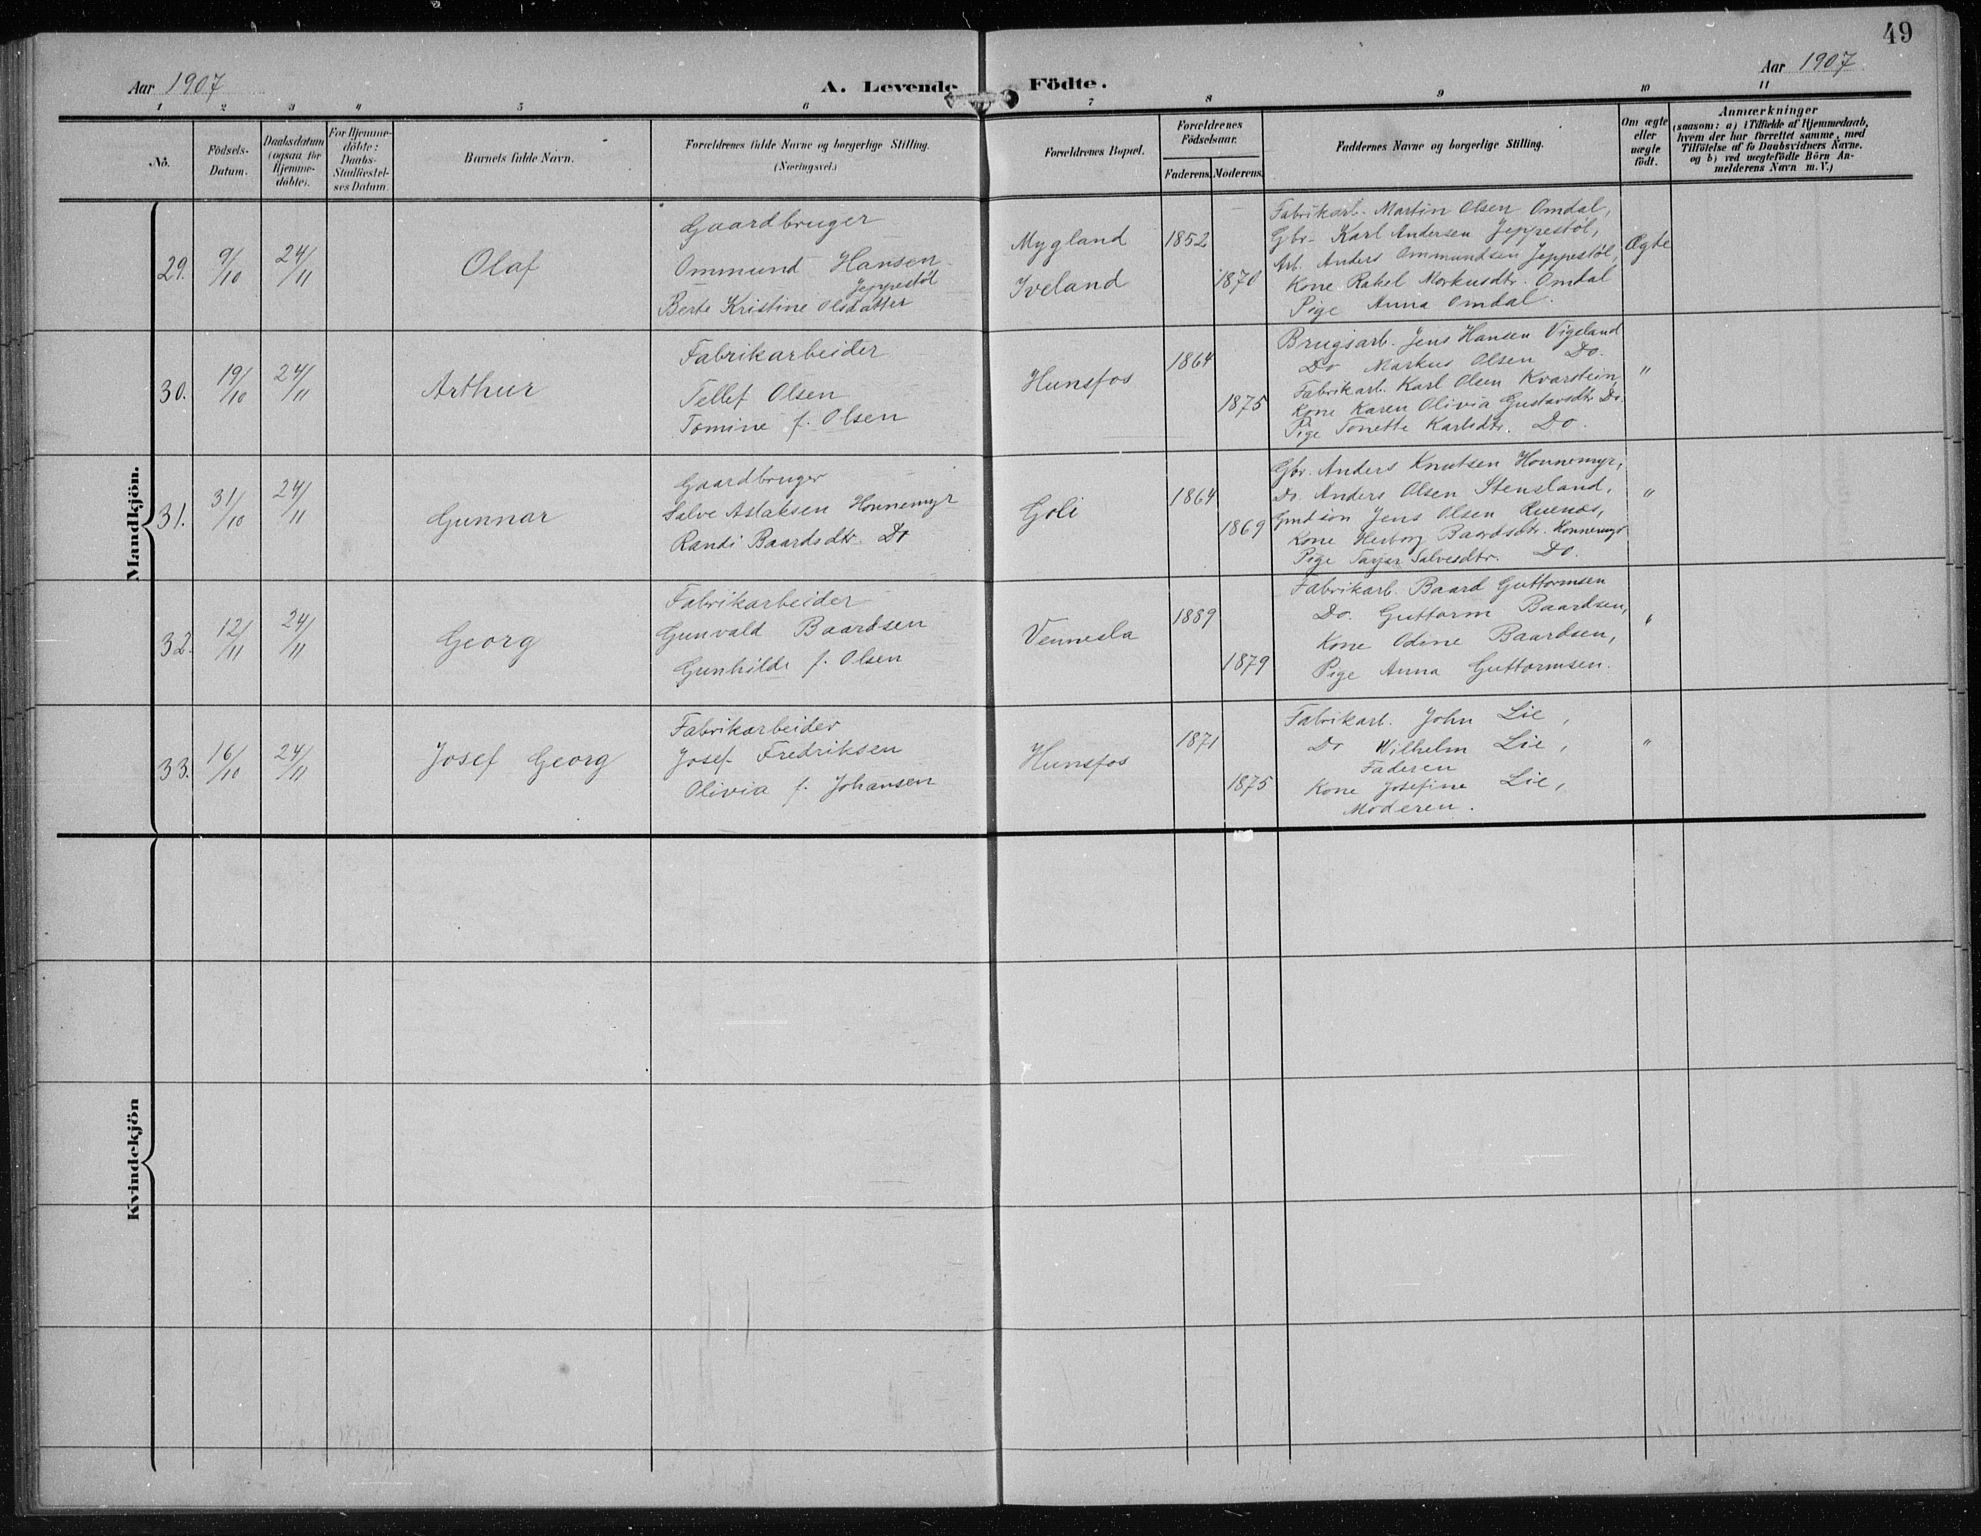 49
Aar 1907
A. Levende Födte.
Aar 1907
1 2 3 4 5 6 7 8 9 10 11
No.
Födsels-Datum.
Daabsdatum (ogsaa for Hjemme-döbte).
For Hjemme-döbte: Daabs-Stadfæstel-ses Datum.
Barnets fulde Navn.
Forældrenes fulde Navne og borgerlige Stilling. (Næringsvei.)
Forældrenes Bopæl.
Forældrenes Födselsaar.
Faderens. Moderens.
Faddernes Navne og borgerlige Stilling.
Om ægte eller uægte födt.
Anmærkninger
(saasom: a) i Tilfælde af Hjemmedaab, hvem der har forrettet samme, med Tilföielse af to Daabsvidners Navne. og b) ved uægtefödte Börn An-melderens Navn m. V.)
Mandkjön.
29. 9/10 24/11 Olaf
Gaardbruger
Ommund Hansen
Jeppestöl
Berte Kristine Olsdatter
Mygland
Iveland
1852
1870
Fabrikarb. Martin Olsen Omdal,
Gbr. Karl Andersen Jeppestöl,
Arb. Anders Ommundsen Jeppestöl,
Kone Rakel Markusdtr. Omdal
Pige Anna Omdal.
Ægte
30. 19/10 24/11 Arthur
Fabrikarbeider
Tellef Olsen
Tomine f. Olsen
Hunsfos
1864
1875
Brugsarb. Jens Hansen Vigeland
Do Markus Olsen Do.
Fabrikarb. Karl Olsen Kvarstein,
Kone Karen Olivia Gustavsdtr. Do.
Pige Tonette Karlsdtr. Do.
"
31. 31/10 24/11 Gunnar
Gaardbruger
Salve Aslaksen Honnemyr
Randi Baardsdtr. Do
Goli
1864
1869
Gbr. Anders Knutsen Honnemyr,
Do. Anders Olsen Stensland,
Gmdsön Jens Olsen
Kone Herborg Baardsdtr. Honnemyr
Pige Salvesdtr. Do.
"
32. 12/11 24/11 Georg
Fabrikarbeider
Gunvald Baardsen
Gunhilde f. Olsen
Vennesla
1889
1879
Fabrikarb. Baard Guttormsen
Do. Guttorm Baardsen,
Kone Odine Baardsen,
Pige Anna Guttormsen.
"
33. 16/10 24/11 Josef Georg
Fabrikarbeider
Josef Fredriksen
Olivia f. Johansen
Hunsfos
1871
1875
Fabrikarb. John Lie,
Do Wilhelm Lie,
Faderen
Kone Josefine Lie,
Moderen.
"
Kvindekjön